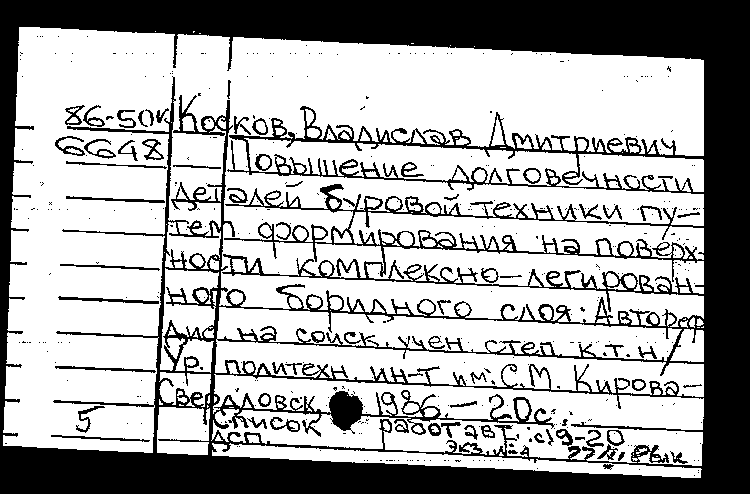 86-50к Косков, Владислав Дмитриевич
6648 Повышение долговечности
деталей буровой техники пу-
тем формирования на поверх-
ности комплексно-легирован-
ного боридного слоя: Автореф
дис. на соиск. учен. степ. к.т.н./
Ур. политехн. ин-т им. С.М. Кирова.-
Свердловск, 1986.-20с.:
5 Список работ авт.: с19-20
ДСП. экз. 27